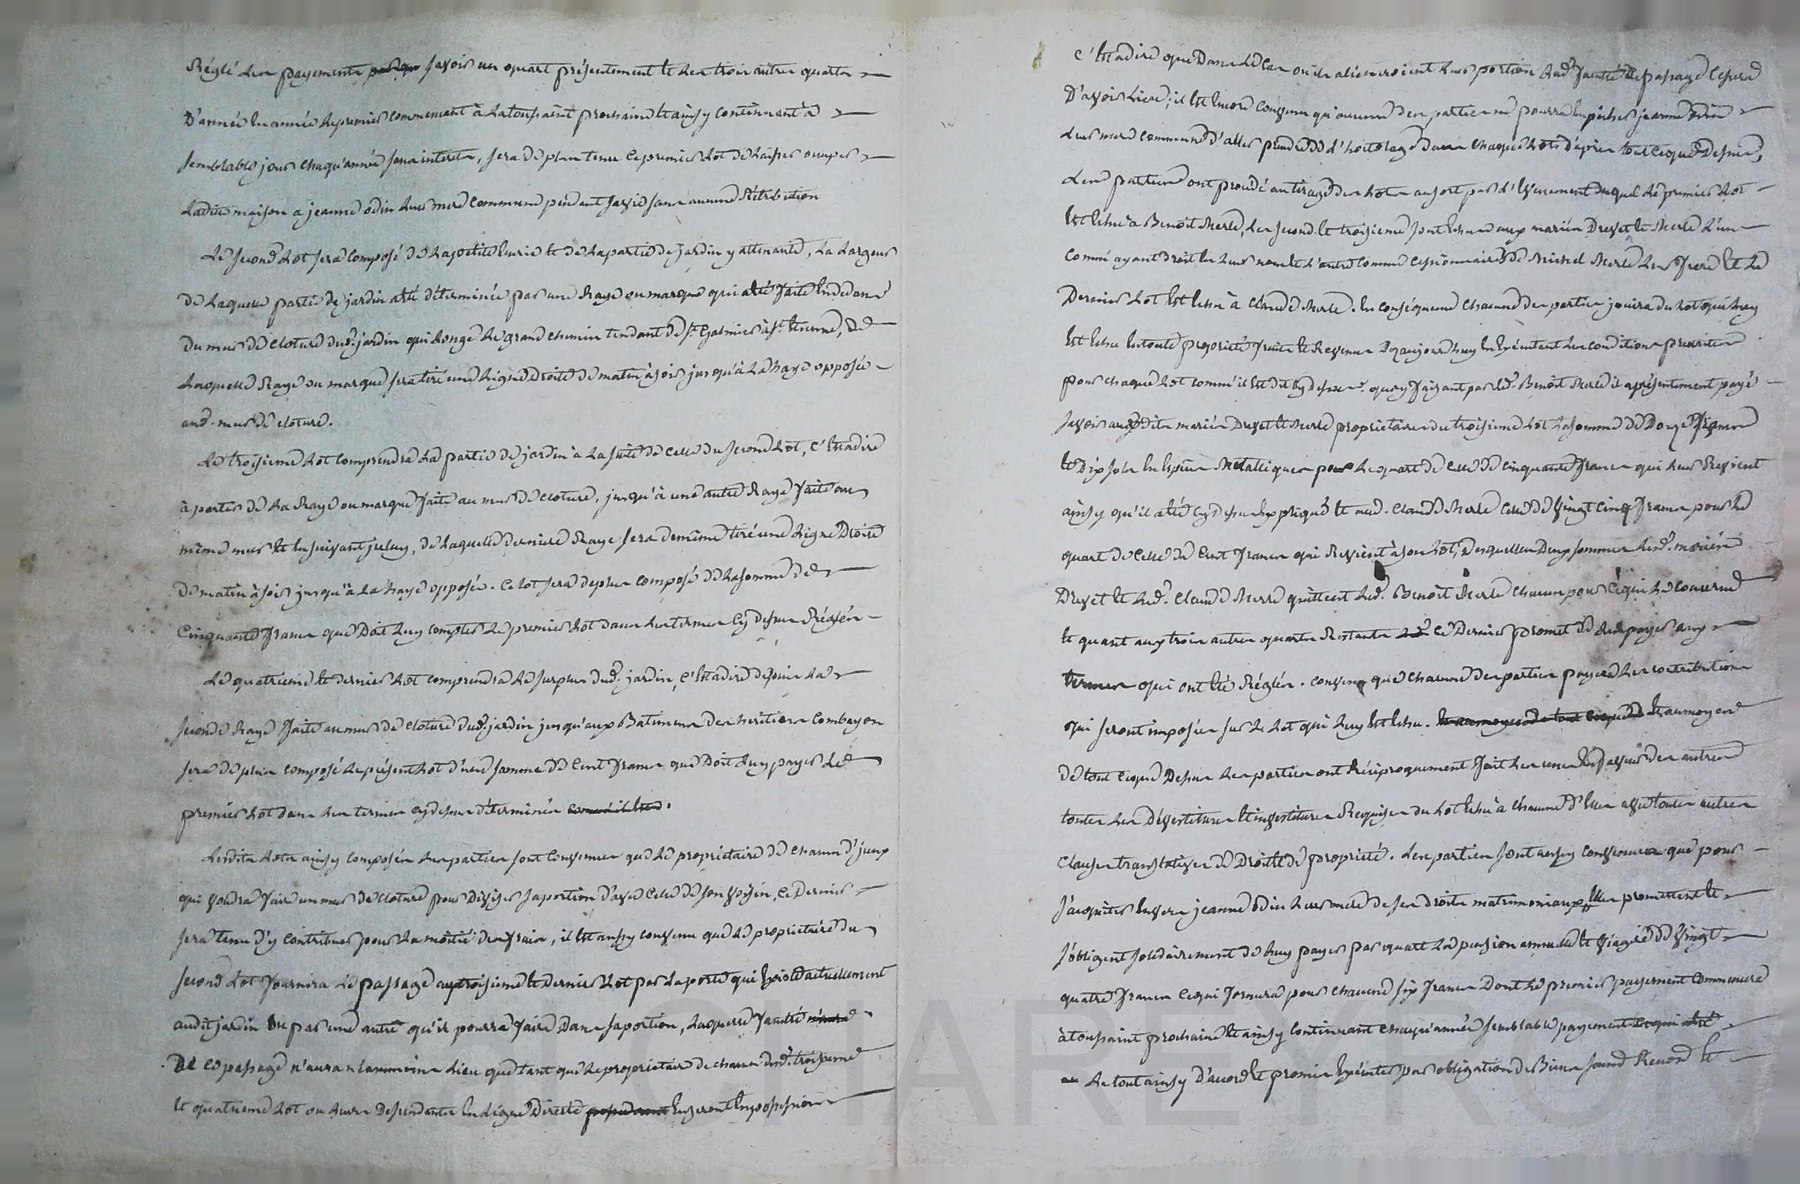 Réglé des payements savoir un quart présentement et les trois autres quarts
D'année en année le premier commencant à la toussaint prochaine et ainsy continuant à
semblable jour chaqu'année sans interets, sera de plus tenu le premier lot de laisser occuper
ladite maison a jeanne odin leur mere commune pendant sa vie sans aucune Rétribution
Le second Lot sera composé de la petite Ecurie et de la partie de jardin y attenante, la largeur
de laquelle partie de jardin a été déterminée par une Raye ou marque qui a été faite En dedans
Du mur de cloture dud. jardin qui longe le grand chemin tendant de St. Galmier à St. Etienne, de
laquelle Raye ou marque sera tiré une Ligne Droite de matin à soir jusqu'à la haye opposée
aud. mur de cloture.
Le troisieme Lot comprendra la partie de jardin à la suite de celle du second Lot, C'Estadire
à partir de la Raye ou marque faite au mur de cloture, jusqu'à une autre Raye faite au
même mur et en suivant jceluy, de laquelle derniere Raye sera de même tiré une Ligne Droite
de matin à soir jusqu'à la haye opposée. Ce lot sera de plus composé de la somme de
Cinquante francs que Doit luy compter le premier Lot dans les termes Cy dessus Réglés
Le quatrieme et dernier Lot comprendra le surplus dud. jardin, C'Estadire depuis la
seconde Raye faite au mur de cloture dud. jardin jusqu'aux Batiments des heritiers Combayon
sera de plus composé le présent Lot d'une somme de Cent francs que Doit luy payer le
premier Lot dans les termes cy dessus déterminés
Lesdits Lots ainsy composés les parties sont convenues que le propriétaire de chacun d'jceux
qui voudra faire un mur de cloture pour diviser sa portion d'avec celle de son voisin, ce Dernier
sera tenu d'y contribuer pour la moitié des frais, il Est ainsy convenu que le propriétaire du
second Lot fournira le passage au troisieme et dernier Lot par la porte qui Existe actuellement
audit jardin ou par une autre qu'il pourra faire Dans sa portion, laquelle faculté
De ce passage n'aura neanmoins Lieu que tant que le propriétaire de chacun desd. troisieme
et quatrieme Lot ou leurs Descendants En Ligne Directe En seront En possession
C'Estadire que Dans le Cas ou ils alieneroient leur portion lad. faculté de passage Cessera
D'avoir Lieu; il Est Encore Convenu qu'aucune des parties ne pourra Empêcher jeanne odin
leur mere commune d'aller prendre de l'hortolage Dans chaque Lots d'après tout ce que Dessus,
Les parties ont procédé au tirage des Lots au sort par l'Evenement duquel le premier Lot
Est Echu à Benoit Merle, Les second et troisieme sont Echus aux mariés Drevet et Merle L'un
Comme ayant droit En leurs noms et L'autre Comme cessionnaires de Michel Merle leur frere Et le
Dernier Lot Est Echu à Claude Merle. En conséquence chacune des parties jouira du Lot qui luy
Est Echu En toute propriété fruits et Revenus Dez aujourd'huy En Exécutant les conditions prescrites
pour chaque Lot comm'il Est dit cy dessus. quoy faisant par led. Benoit Merle il a présentement payé
savoir auxdits mariés Drevet et Merle proprietaires du troisieme Lot la somme de Douze francs
et Dix sols En Espèces Métalliques pour le quart de celle de cinquante francs qui leur Revient
ainsy qu'il a été Cy dessus Expliqué Et aud. Claude Merle celle de Vingt cinq francs pour le
quart de celle de Cent francs qui Revient à son Lot, Desquelles Deux sommes lesd. mariés
Drevet et led. Claude Merle quittent led. Benoit Merle chacun pour Ce qui le concerne
Et quant aux trois autres quarts Restants Ce Dernier promet de les payer aux
termes qui ont Eté Réglés. Convenu que chacune des parties payera les contributions
qui seront imposées sur le Lot qui luy Est Echu. Et au moyen
de tout ce que Dessus les parties ont Réciproquement fait les unes En faveur des autres
toutes les Dévestitures Et investitures Requises du Lot Echu à Chacune d'Elles avec toutes autres
Clauses translatives de Droit et de propriété. Les parties sont ainsy convenues que pour
s'acquitter Envers jeanne odin leur mere de ses droits matrimoniaux Elles promettent et
s'obligent solidairement de luy payer par quart la pension annuelle et viagere de Vingt
quatre francs Ce qui formera pour chacune six francs Dont le premier payement Commencera
à toussaint prochaine et ainsy Continuant chaqu'année semblable payement
Le tout ainsy D'accord et promis Exécuter par obligation de Biens soumis Renoncé Et